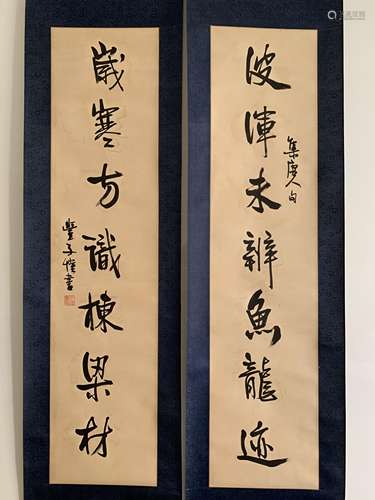 波渾未辨魚龍迹
集唐人句
歲寒方識棟梁材
豐子愷書